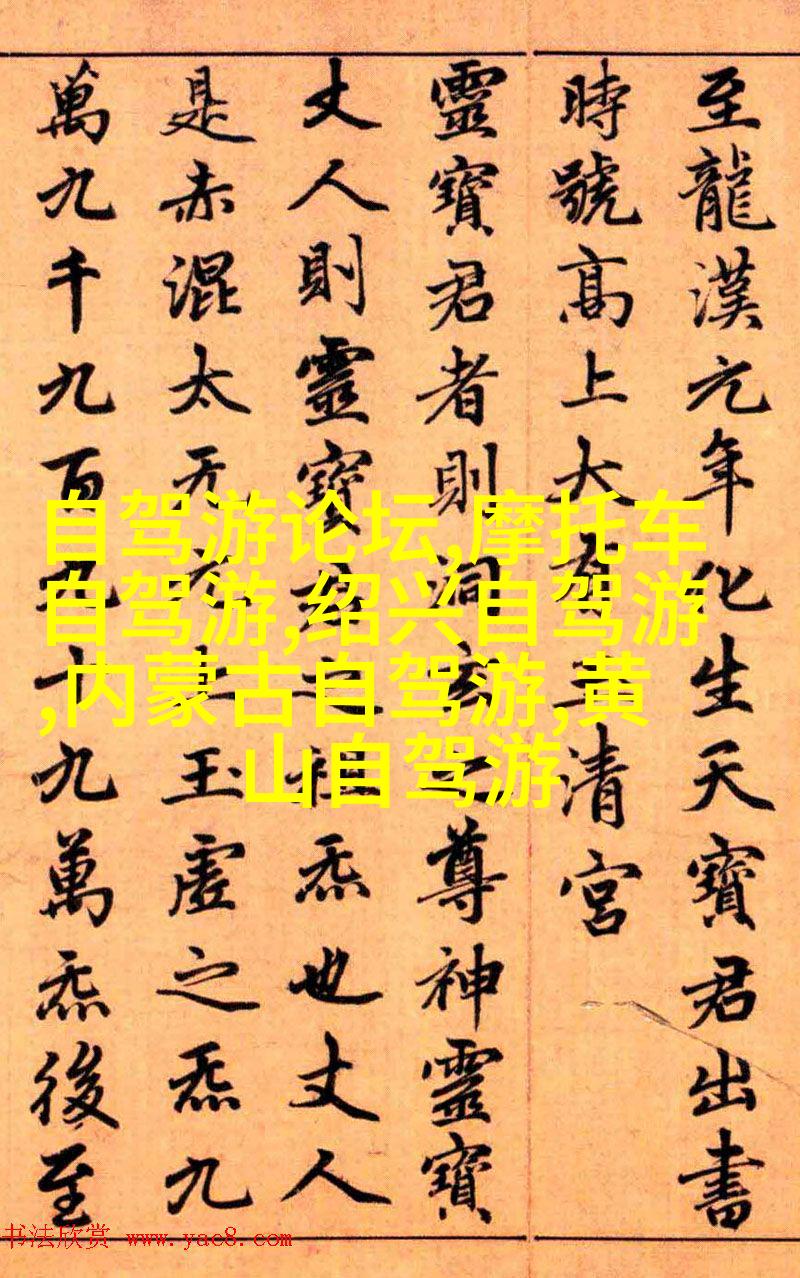 至龍漢元年化生天寶君出書
時號高上大清宮
靈寶君者則洞玄之尊神靈寶
丈人則靈寶君之祖炁也丈人
是赤混太无元上玉虛之炁九
萬九千九百九十九萬炁後至
自驾游论坛,摩托车
自驾游,绍兴自驾游
,内蒙古自驾游,黄
山自驾游
书法欣赏 www.yac8.com